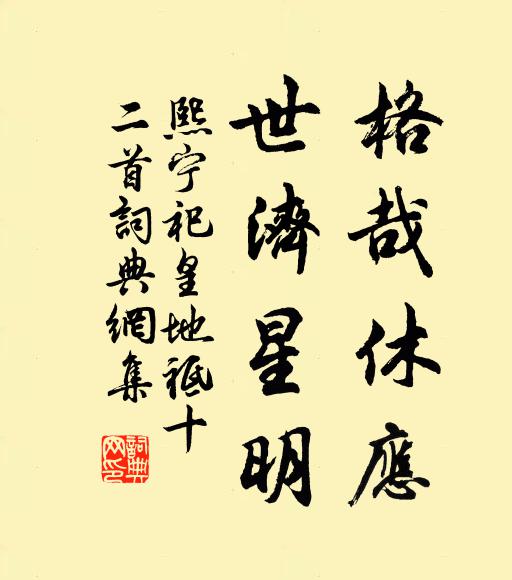 格哉休應
世濟星明
熙宁祀皇地祗十
二首詞典網集
詞典
网印